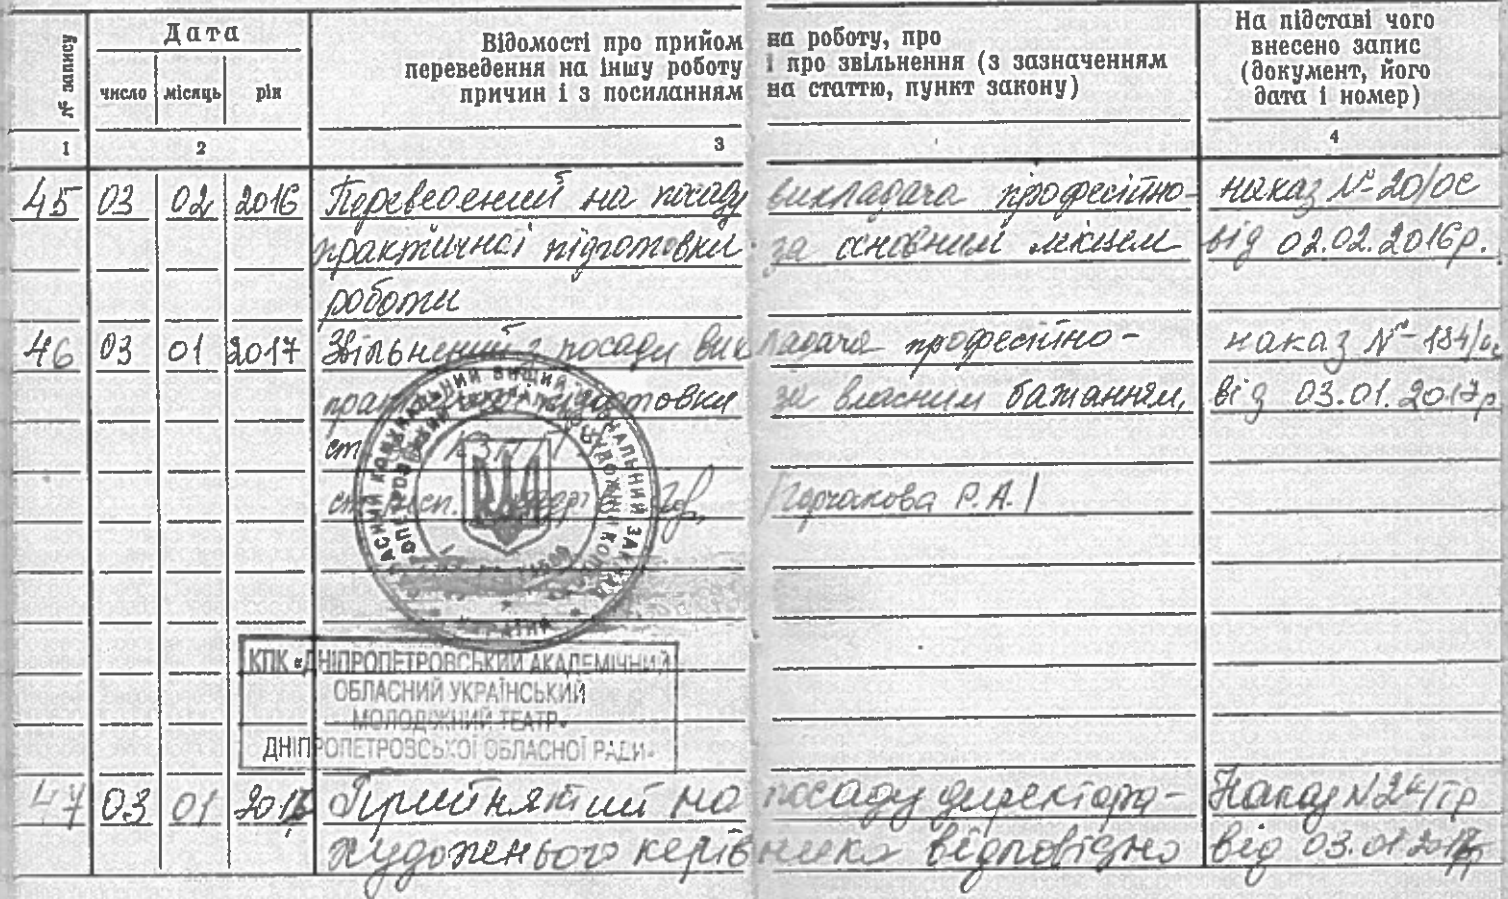 № запису
Дата
число місяць рік
Відомості про прийом на роботу, про
переведення на іншу роботу і про звільнення (з зазначенням
причин і з посиланням на статтю, пункт закону)
На підставі чого
внесено запис
(документ, його
дата і номер)
1 2 3 4
45 03 02 2016 Переведений на посаду викладача професійно- наказ № 20/ос
практичної підготовки за основним місцем від 02.02.2016р.
роботи
46 03 01 2017 Звільнений з посади викладача професійно- наказ № 184/ос
підготовки за власним бажанням, від 03.01.2017р
ст
/Горчакова Р.А./
УКРАЇНА
КПК «ДНІПРОПЕТРОВСЬКИЙ АКАДЕМІЧНИЙ
ОБЛАСНИЙ УКРАЇНСЬКИЙ
МОЛОДІЖНИЙ ТЕАТР»
ДНІПРОПЕТРОВСЬКОЇ ОБЛАСНОЇ РАДИ»
47 03 01 2017 Прийнятий на посаду директора- Наказ
художнього керівника відповідно від 03.01.2017р